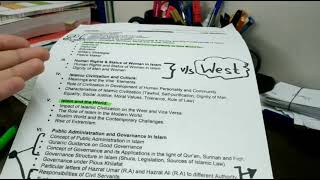 III. Human Rights & Status of Woman in Islam
Human Rights and Status of Woman in Islam
Dignity of Men and Women
} v/s {West
IV. Islamic Civilization and Culture:
Meanings and the Vital Elements
Role of Civilization in Development of Human Personality and Community
Characteristics of Islamic Civilization (Tawhid, Self-purification, Dignity of Man,
Equality, Social Justice, Moral Values, Tolerance, Rule of Law)
V. Islam and the World:
Impact of Islamic Civilization on the West and Vice Versa
The Role of Islam in the Modern World.
Muslim World and the Contemporary Challenges.
Rise of Extremism.
VI. Public Administration and Governance in Islam
Concept of Public Administration in Islam
Quranic Guidance on Good Governance
Concept of Governance and its Applications in the light of Qur'an, Sunnah and Fiqh
Governance Structure in Islam (Shura, Legislation, Sources of Islamic Law)
Governance under Pious Khilafat
Particular letters of Hazrat Umar (R.A) and Hazrat Ali (R.A) to different Authorities
Responsibilities of Civil Servants